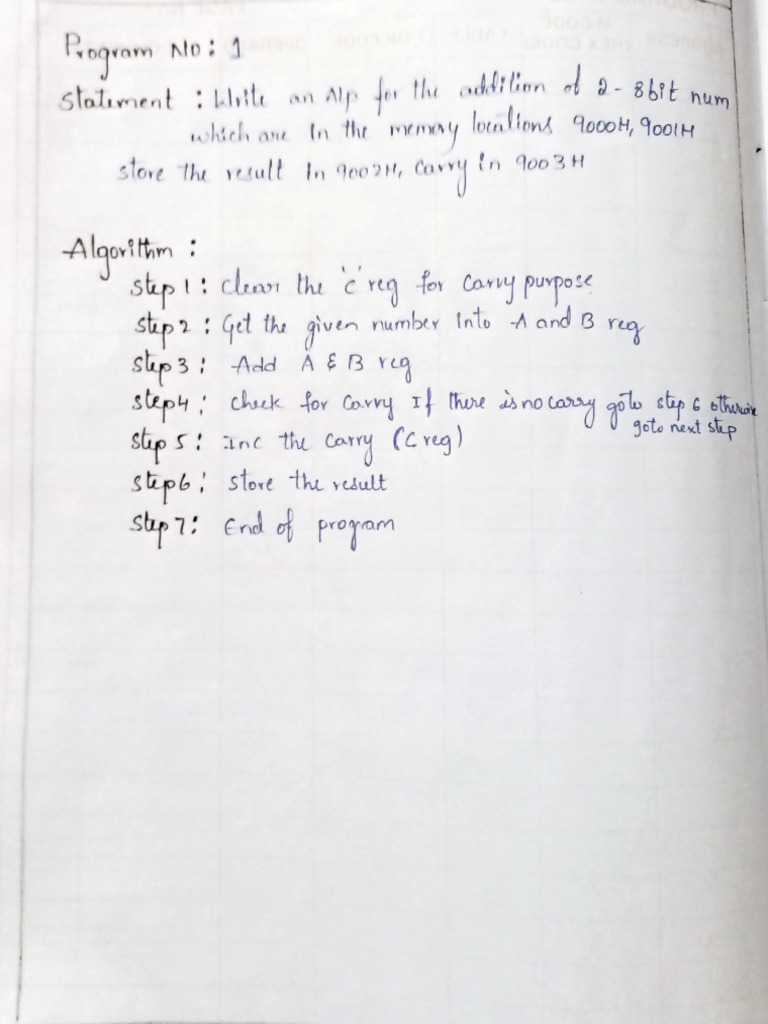 Program No: 1
Statement: Write an Alp for the addition of 2-8bit num
which are in the memory locations 9000H, 9001H
store the result in 9002H, carry in 9003H
Algorithm:
Step 1: Clear the 'c' reg for carry purpose
Step 2: Get the given number into A and B reg
Step 3: Add A & B reg
Step 4: check for carry If there is no carry goto step 6 otherwise
goto next step
Step 5: inc the carry (C reg)
Step 6: store the result
Step 7: End of program